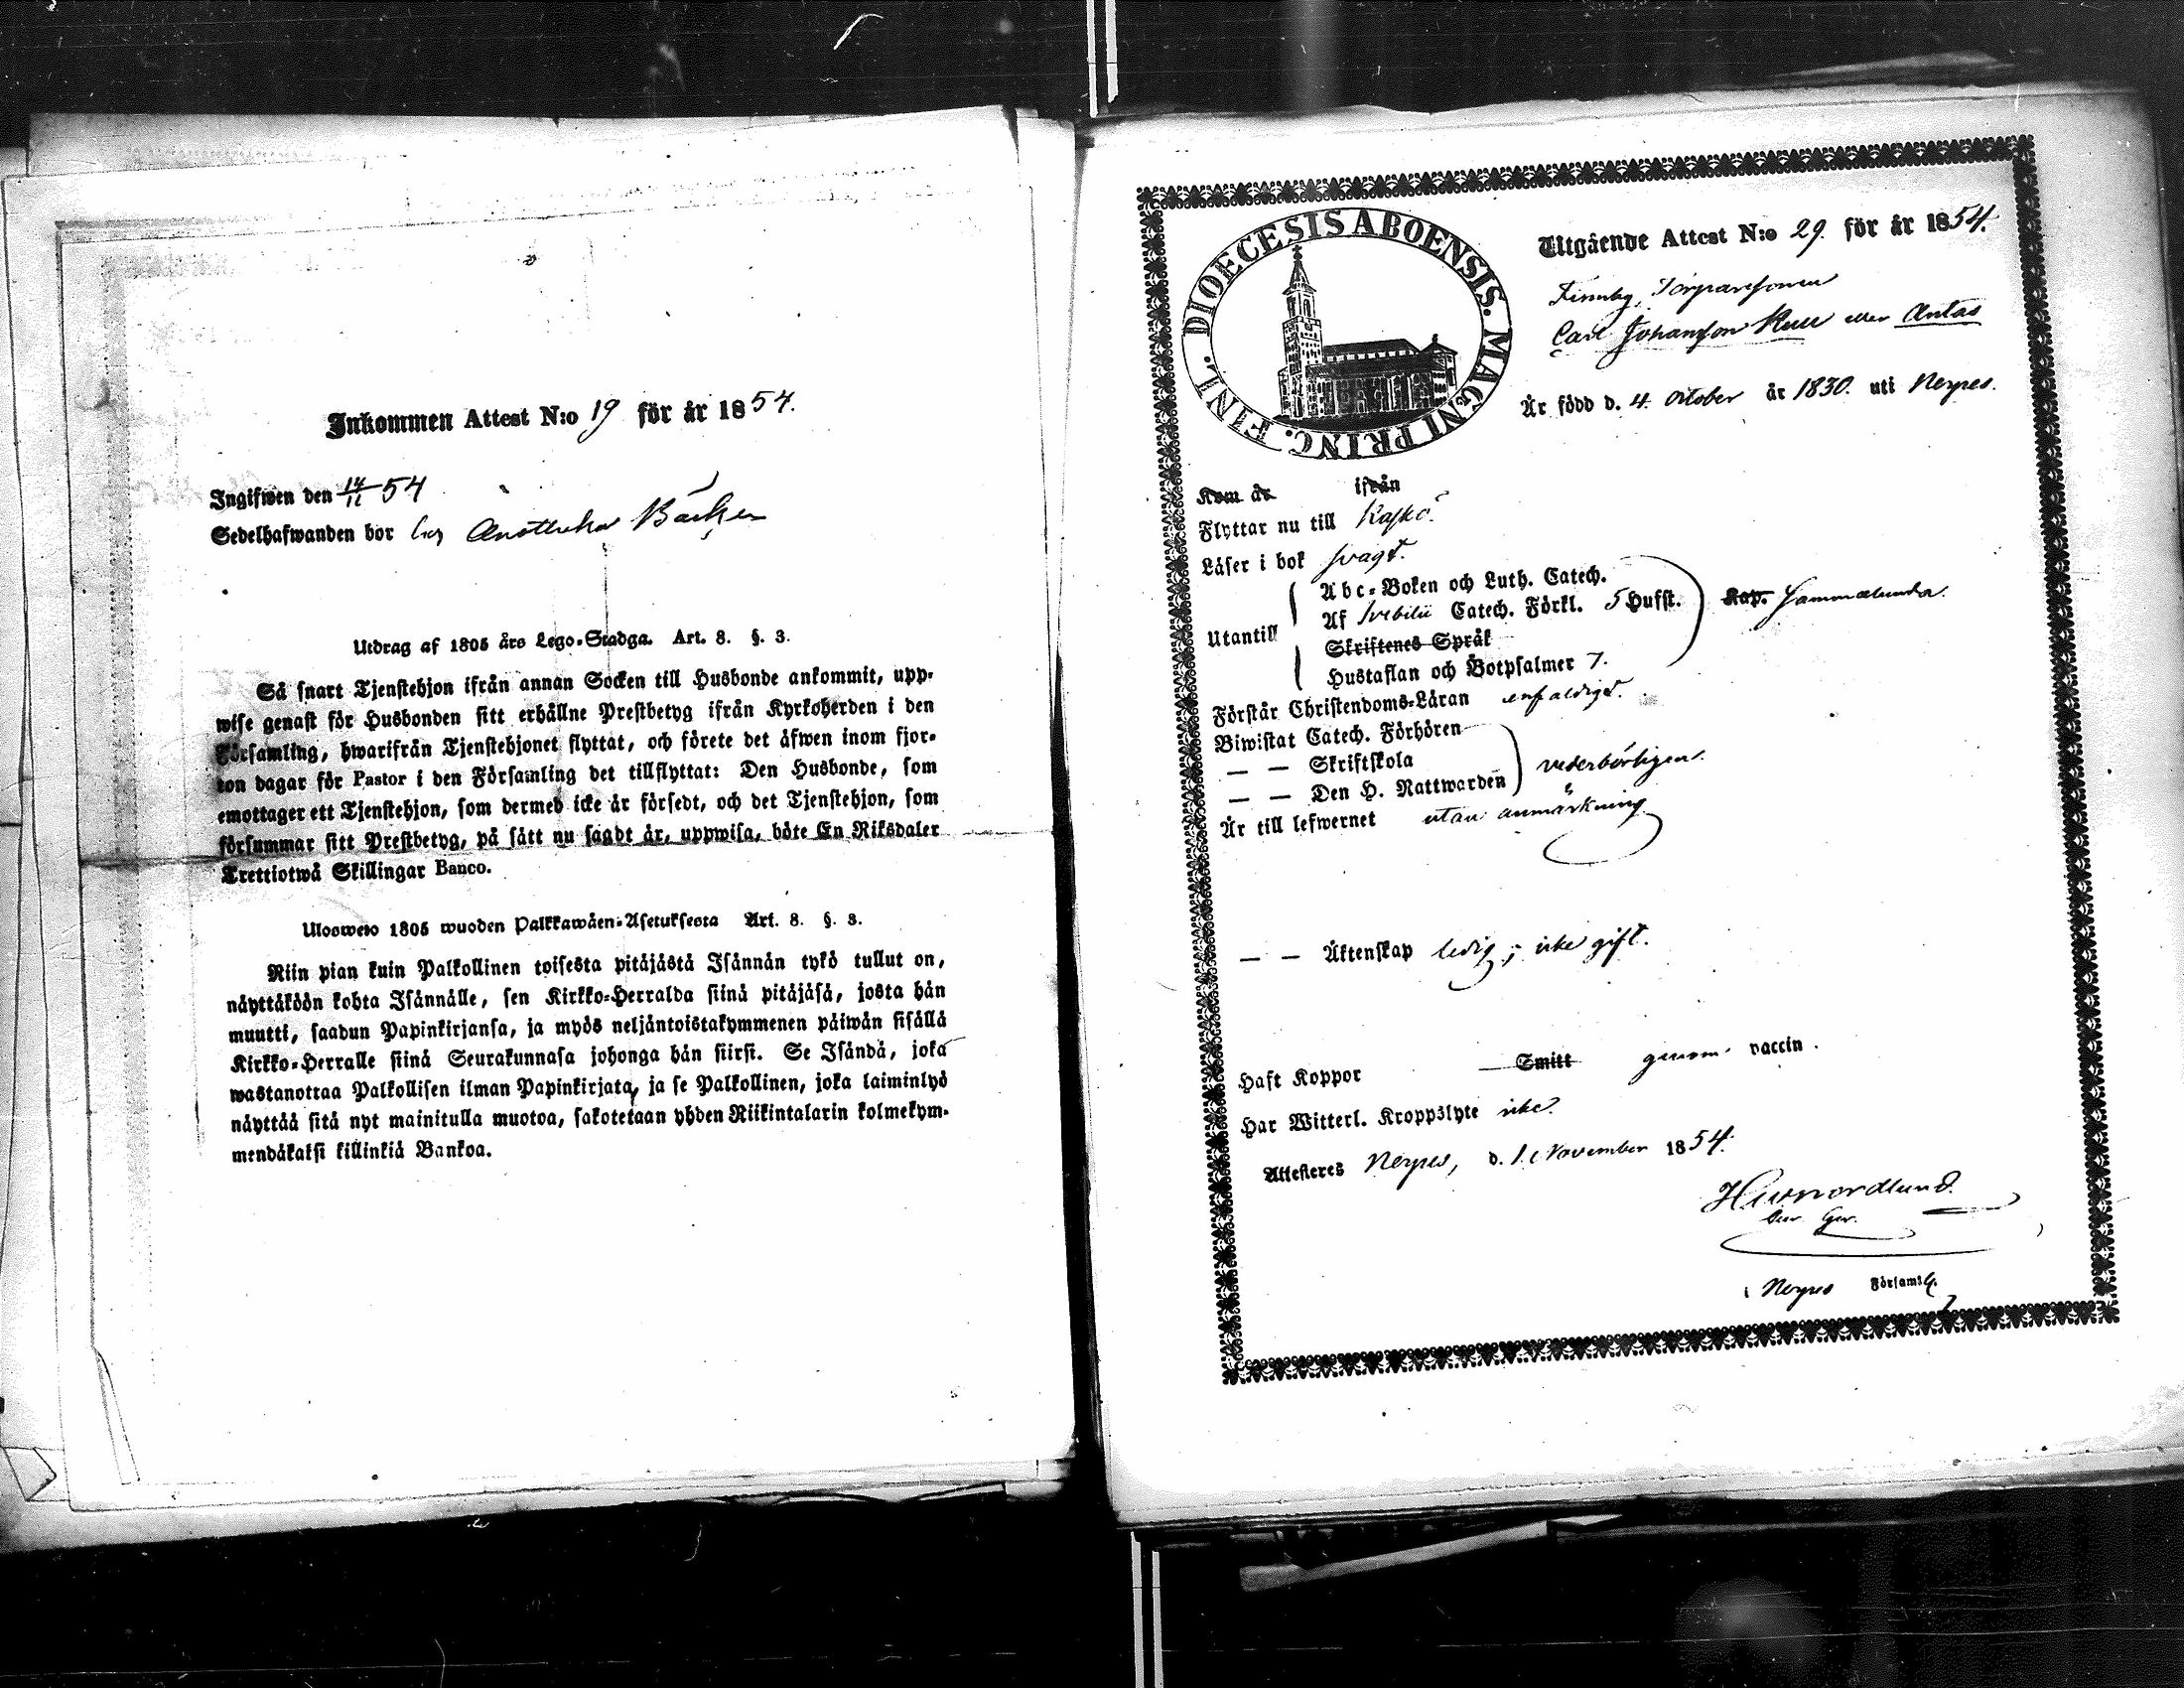 Inkommen Attest N:o 19 för år 1854.
Ingifwen den 14/11 54
Sedelhafwanden bor hos Bäcker
Utdrag af 1805 års Lego-Stadga. Art. 8. §. 3.
Så snart Tjenstehjon ifrån annan Socken till Husbonde ankommit, upp-
wise genast för Husbonden sitt erhållne Prestbetyg ifrån Kyrkoherden i den
Församling, hwarifrån Tjenstehjonet flyttat, och förete det äfwen inom fjor-
ton dagar för Pastor i den Församling det tillflyttat: Den Husbonde, som
emottager ett Tjenstehjon, som dermed icke är försedt, och det Tjenstehjon, som
försummar sitt Prestbetyg, på sätt nu sagdt är, uppwisa, böte En Riksdaler
Trettiotwå Skillingar Banco.
Ulosweto 1805 wuoden Palkkawäen-Asetuksesta Art. 8. §. 3.
Niin pian kuin Palkollinen toisesta pitäjästä Isännän tykö tullut on,
näyttäköön kohta Isännälle, sen Kirkko-Herralda siinä pitäjäsä, josta hän
muutti, saadun Papinkirjansa, ja myös neljäntoistakymmenen päiwän sisällä
Kirkko-Herralle siinä Seurakunnasa johonga hän siirsi. Se Isändä, joka
wastanottaa Palkollisen ilman Papinkirjata, ja se Palkollinen, joka laiminlyö
näyttää sitä nyt mainitulla muotoa, sakotetaan yhden Riikintalarin kolmekym-
mendäkaksi killinkiä Bankoa.
DIOECESIS ABOENSIS. MAGNI PRINC. FINL.
Utgående Attest N:o 29. för år 1854.
Finnby, Torparesonen
Carl Johansson eller Antas
Är född d. 4. October år 1830. uti Nerpes.
Kom år ifrån
Flyttar nu till Kaskö.
Läser i bok svagt.
Utantill
Abc-Boken och Luth. Catech.
Af Svebilii Catech. Förkl. 5 Hufst.
Skriftenes Språk
Hustaflan och Botpsalmer 7.
Kap. Sammalunda.
Förstår Christendoms-Läran enfaldigt.
Biwistat Catech. Förhören
— — Skriftskola
— — Den H. Nattwarden
vederbörligen.
Är till lefwernet utan anmärkning
— — Äktenskap ledig; icke gift.
Haft Koppor Smitt genom vaccin.
Har Witterl. Kroppslyte icke.
Attesteres Nerpes, d. 1. November 1854.
i Nerpes Församl.